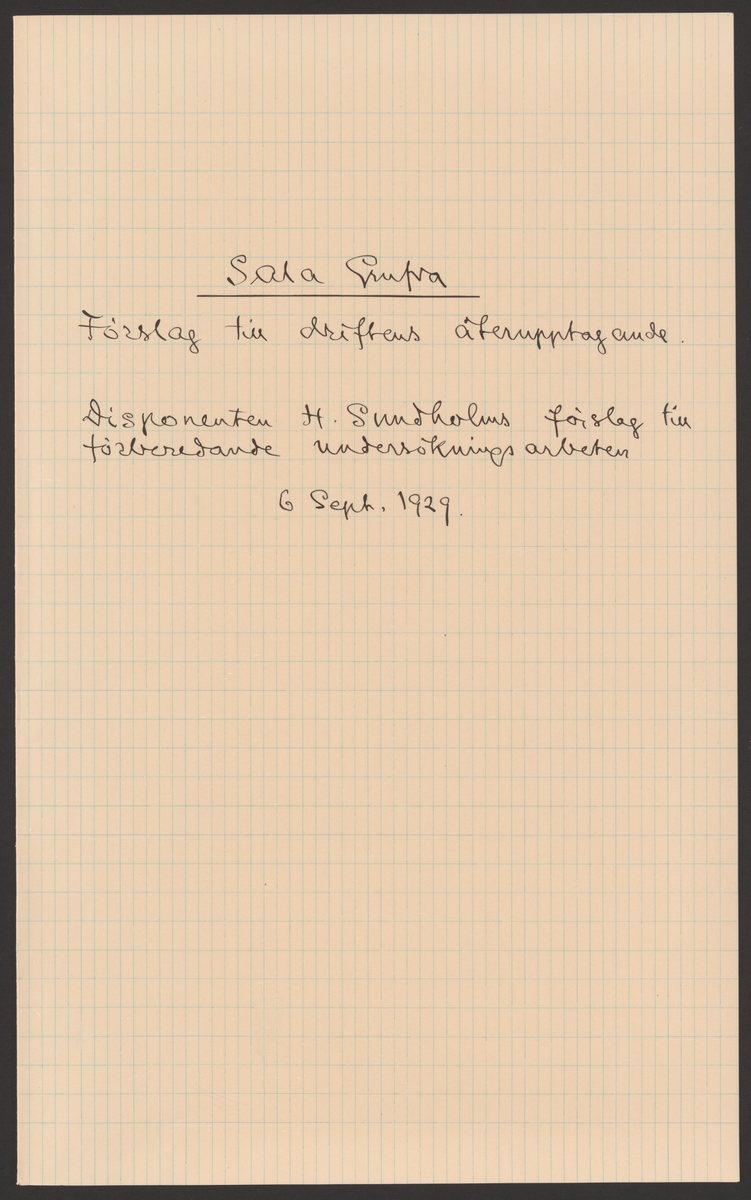 Sala Grufva
Förslag till driftens återupptagande.
Disponenten H. Sundholms förslag till
förberedande undersökningsarbeten
6 Sept. 1929.